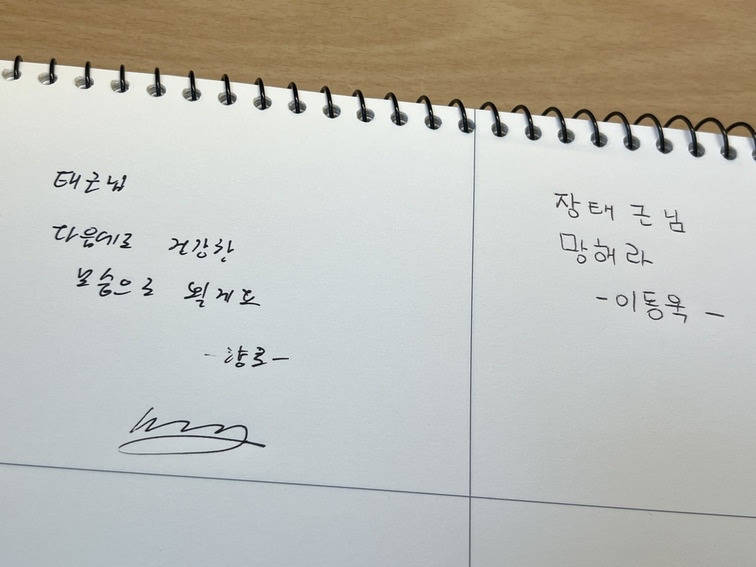 태근님
다음에도 건강한
모습으로 뵐게요
-향로-
장태근님
망해라
-이동욱-